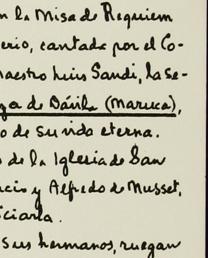 n la Misa de Requiem
erio, cantada por el Co-
maestro Luis Sandi, la Se-
ga de Dávila (Maruca),
o de su vida eterna.
s de la Iglesia de San
acio y Alfredo de Musset,
Sciarla.
sus hermanos, ruegan